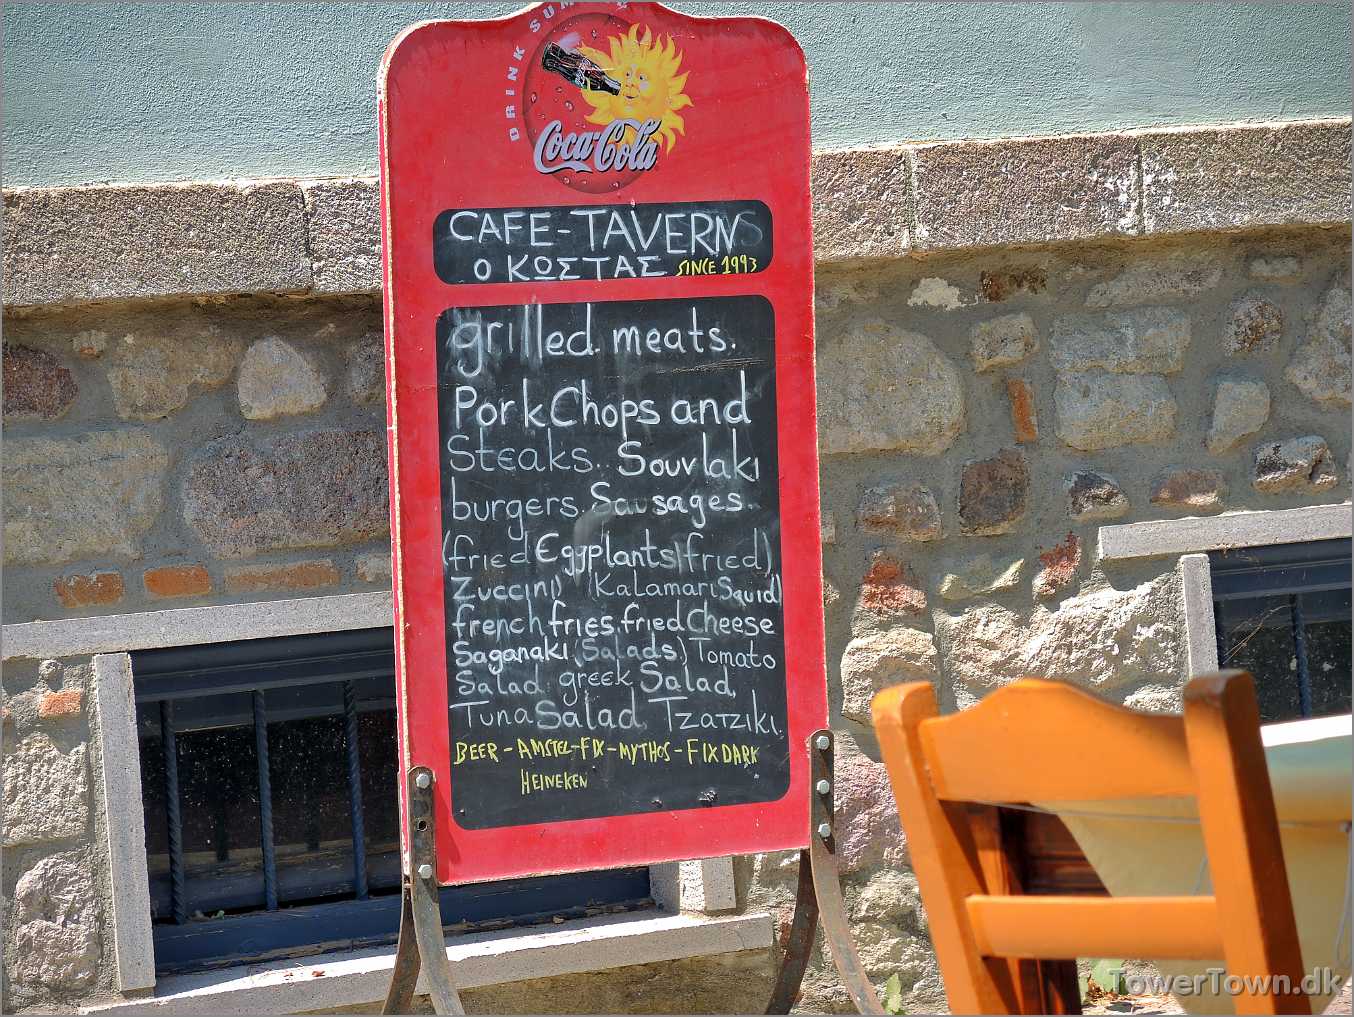 DRINK SUM
Coca-Cola
CAFE-TAVERNS
Ο ΚΩΣΤΑΣ SINCE 1993
grilled. meats.
Pork Chops and
Steaks.. Souvlaki
burgers. Sausages..
(fried Eggplants) fried)
Zuccini) (Kalamari Squid)
french fries. fried Cheese
Saganaki (Salads.) Tomato
Salad. greek Salad,
Tuna Salad, Tzatziki,
BEER - AMSTEL-FIX-MYTHOS-FIX DARK
HEINEKEN
TowerTown.dk